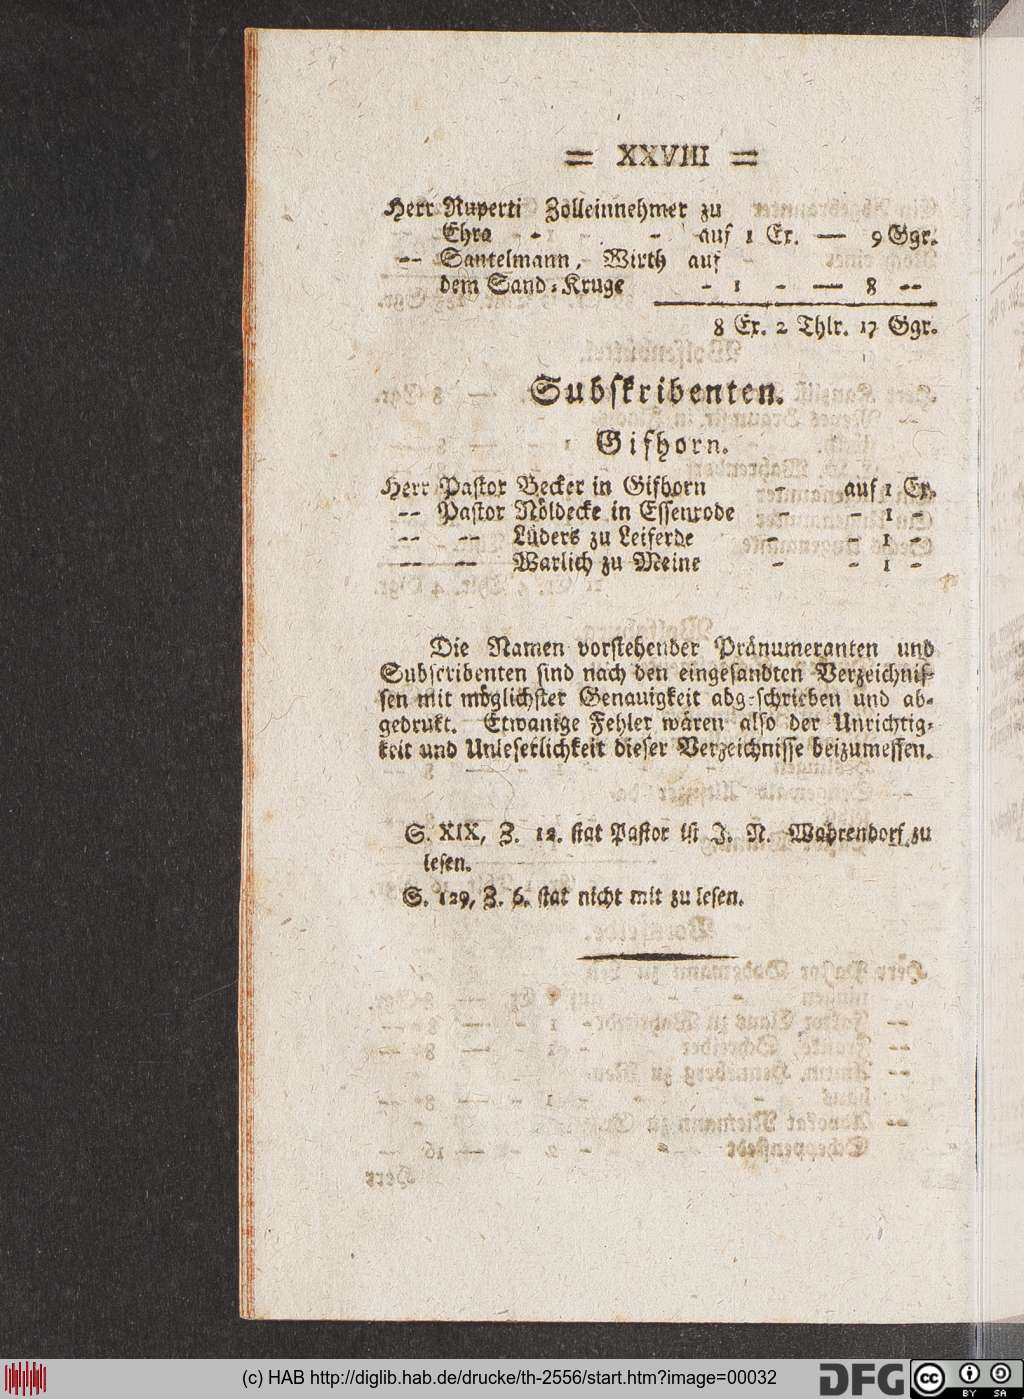 = XXVIII =
Herr Ruperti Zolleinnehmer zu
Ehra - - - auf 1 Ex. — 9 Ggr.
-- Santelmann, Wirth auf
dem Sand-Kruge - 1 - — 8 --
8 Ex. 2 Thlr. 17 Ggr.
Subskribenten.
Gifhorn.
Herr Pastor Becker in Gifhorn - auf 1 Ex.
-- Pastor Nöldecke in Essenrode - - 1 -
-- -- Lüders zu Leiferde - - 1 -
-- -- Warlich zu Meine - - 1 -
Die Namen vorstehender Pränumeranten und
Subscribenten sind nach den eingesandten Verzeichnis-
sen mit möglichster Genauigkeit abgeschrieben und ab-
gedrukt. Etwanige Fehler wären also der Unrichtig-
keit und Unleserlichkeit dieser Verzeichnisse beizumessen.
S. XIX, Z. 12. stat Pastor ist J. N. Wahrendorf zu
lesen.
S. 129, Z. 6. stat nicht mit zu lesen.
(c) HAB http://diglib.hab.de/drucke/th-2556/start.htm?image=00032
DFG
cc
BY SA